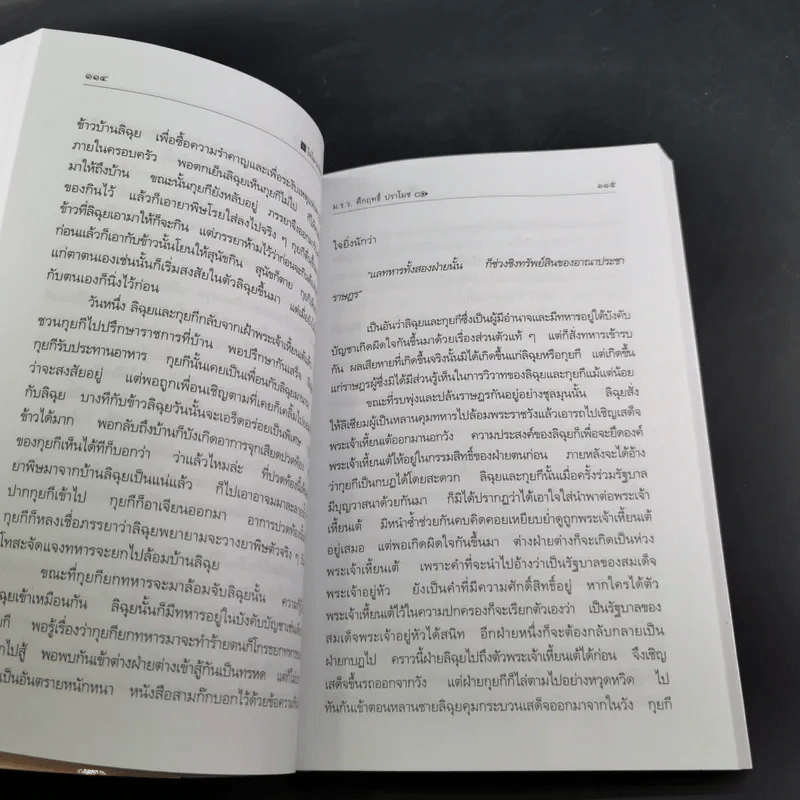 ๑๑๔
ข้าวบ้านลิฉุย เพื่อซื้อความรำคาญและเพื่อระงับเหตุ
ภายในครอบครัว พอตกเย็นลิฉุยเห็นกุยกีไม่ไป
มาให้ถึงบ้าน ขณะนั้นกุยกียังหลับอยู่ ภรรยาจึงออก
ของกินไว้ แล้วก็เอายาพิษโรยใส่ลงไปจริง ๆ กุยกีตื่นขึ้น
ข้าวที่ลิฉุยเอามาให้ก็จะกิน แต่ภรรยาห้ามไว้ว่าก่อนจะกิน
ก่อนแล้วก็เอากับข้าวนั้นโยนให้สุนัขกิน สุนัขก็ตาย
แก่ตาตนเองเช่นนั้นก็เริ่มสงสัยในตัวลิฉุยขึ้นมา แต่เมื่อยัง
กับตนเองก็นิ่งไว้ก่อน
วันหนึ่ง ลิฉุยและกุยกีกลับจากเฝ้าพระเจ้าเหี้ยนเต้แล้ว
ชวนกุยกีไปปรึกษาราชการที่บ้าน พอปรึกษากันเสร็จ
กุยกีรับประทานอาหาร กุยกีนั้นเคยเป็นเพื่อนกับลิฉุยมานาน
ว่าจะสงสัยอยู่ แต่พอถูกเพื่อนเชิญตามที่เคยก็เคลิ้มไป
กับลิฉุย บางทีกับข้าวลิฉุยวันนั้นจะเอร็ดอร่อยเป็นพิเศษ
ข้าวได้มาก พอกลับถึงบ้านก็บังเกิดอาการจุกเสียดปวดท้อง
ของกุยกีเห็นได้ทีก็บอกว่า ว่าแล้วไหมล่ะ ที่ปวดท้องนี้
ยาพิษมาจากบ้านลิฉุยเป็นแน่แล้ว ก็ไปเอาอาจมมาละลาย
ปากกุยกีเข้าไป กุยกีก็อาเจียนออกมา อาการปวดท้อง
กุยกีก็หลงเชื่อภรรยาว่าลิฉุยพยายามจะวางยาพิษตัวจริง ๆ
โทสะจัดแจงทหารจะยกไปล้อมบ้านลิฉุย
ขณะที่กุยกียกทหารจะมาล้อมจับลิฉุยนั้น
ฉุยเข้าเหมือนกัน ลิฉุยนั้นก็มีทหารอยู่ในบังคับบัญชาเช่น
กี พอรู้เรื่องว่ากุยกียกทหารมาจะทำร้ายตนก็โกรธยกทหาร
กไปสู้ พอพบกันเข้าต่างฝ่ายต่างเข้าสู้กันเป็นทรหด
เป็นอันตรายหนักหนา หนังสือสามก๊กบอกไว้ด้วยข้อความ
ม.ร.ว. คึกฤทธิ์ ปราโมช
๑๑๕
ใจยิ่งนักว่า
"แลทหารทั้งสองฝ่ายนั้น ก็ช่วงชิงทรัพย์สินของอาณาประชา
ราษฎร"
เป็นอันว่าลิฉุยและกุยกีซึ่งเป็นผู้มีอำนาจและมีทหารอยู่ใต้บังคับ
บัญชาเกิดผิดใจกันขึ้นมาด้วยเรื่องส่วนตัวแท้ ๆ แต่ก็สั่งทหารเข้ารบ
กัน ผลเสียหายที่เกิดขึ้นจริงนั้นมิได้เกิดขึ้นแก่ลิฉุยหรือกุยกี แต่เกิดขึ้น
แก่ราษฎรผู้ซึ่งมิได้มีส่วนรู้เห็นในการวิวาทของลิฉุยและกุยกีแม้แต่น้อย
ขณะที่รบพุ่งและปล้นราษฎรกันอยู่อย่างชุลมุนนั้น ลิฉุยสั่ง
ให้ลิเซียมผู้เป็นหลานคุมทหารไปล้อมพระราชวังแล้วเอารถไปเชิญเสด็จ
พระเจ้าเหี้ยนเต้ออกมานอกวัง ความประสงค์ของลิฉุยก็เพื่อจะยึดองค์
พระเจ้าเหี้ยนเต้ให้อยู่ในกรรมสิทธิ์ของฝ่ายตนก่อน ภายหลังจะได้อ้าง
ว่ากุยกีเป็นกบฏได้โดยสะดวก ลิฉุยและกุยกีนั้นเมื่อครั้งร่วมรัฐบาล
มีบุญวาสนาด้วยกันมา ก็มิได้ปรากฏว่าได้เอาใจใส่นำพาต่อพระเจ้า
เหี้ยนเต้ มีหนำซ้ำช่วยกันคบคิดคอยเหยียบย่ำดูถูกพระเจ้าเหี้ยนเต้
อยู่เสมอ แต่พอเกิดผิดใจกันขึ้นมา ต่างฝ่ายต่างก็จะเกิดเป็นห่วง
พระเจ้าเหี้ยนเต้ เพราะคำที่จะนำไปอ้างว่าเป็นรัฐบาลของสมเด็จ
พระเจ้าอยู่หัว ยังเป็นคำที่มีความศักดิ์สิทธิ์อยู่ หากใครได้ตัว
พระเจ้าเหี้ยนเต้ไว้ในความปกครองก็จะเรียกตัวเองว่า เป็นรัฐบาลของ
สมเด็จพระเจ้าอยู่หัวได้สนิท อีกฝ่ายหนึ่งก็จะต้องกลับกลายเป็น
ฝ่ายกบฏไป คราวนี้ฝ่ายลิฉุยไปถึงตัวพระเจ้าเหี้ยนเต้ได้ก่อน จึงเชิญ
เสด็จขึ้นรถออกจากวัง แต่ฝ่ายกุยกีก็ไล่ตามไปอย่างหวุดหวิด ไป
ทันกันเข้าตอนหลานชายลิฉุยคุมกระบวนเสด็จออกมาจากในวัง กุยกี